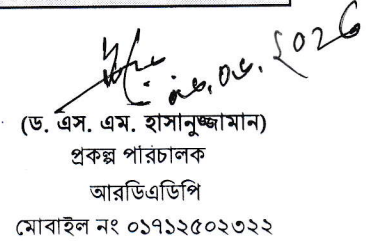 (ড. এস. এম. হাসানুজ্জামান)
প্রকল্প পরিচালক
আরডিএডিপি
মোবাইল নং ০১৭১২৫০২৩২২